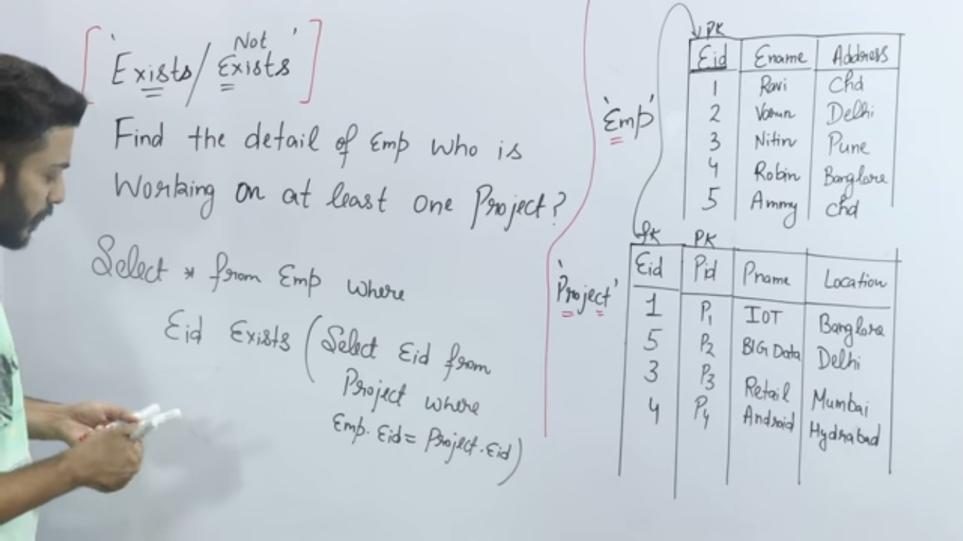 ['Exists/ Not Exists']
Find the detail of Emp who is
Working on at least one Project?
Select * from Emp where
Eid Exists (Select Eid from
Project where
Emp.Eid = Project.Eid)
'Emp'
PK
Eid Ename Address
1 Ravi Chd
2 Varun Delhi
3 Nitin Pune
4 Robin Banglore
5 Ammy Chd
'Project'
fK PK
Eid Pid Pname Location
1 P1 IOT Banglore
5 P2 BIG Data Delhi
3 P3 Retail Mumbai
4 P4 Android Hydrabad